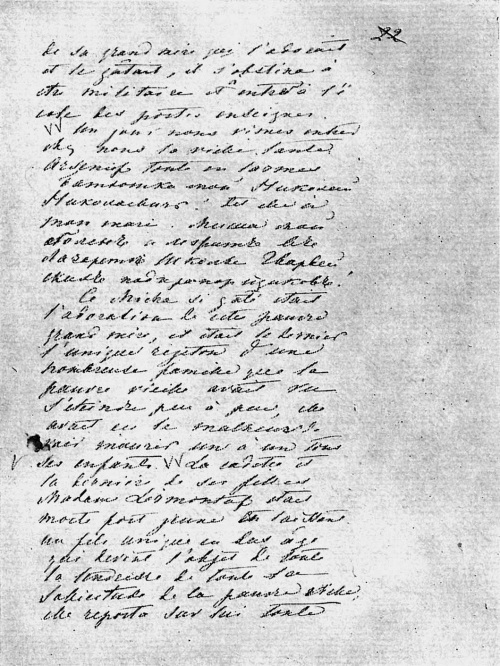 22
de sa grand mère qui l'adorait
et le gâtait, il s'obstina à
être militaire et entra à l'é
cole des portes enseignes.
Un jour nous vîmes entrer
chez nous la vieille tante
Arsenieff toute en larmes
Батюшка мой Николай
Николаевичъ! dit elle à
mon mari. Миша мой
боленъ и лежитъ въ
лазаретѣ школы Гвардей
скихъ подпрапорщиковъ!
Ce Micha si gâté était
l'adoration de cette pauvre
grand mère, il était le dernier
l'unique rejeton d'une
nombreuse famille que la
pauvre vieille avait vu
s'éteindre peu à peu, elle
avait eu le malheur de
voir mourir un à un tous
ses enfants. La cadette et
la dernière de ses filles
Madame Lermontoff était
morte fort jeune en laissant
un fils unique en bas âge
qui devint l'objet de toute
la tendresse de toute la
sollicitude de la pauvre vieille,
elle reporta sur lui toute